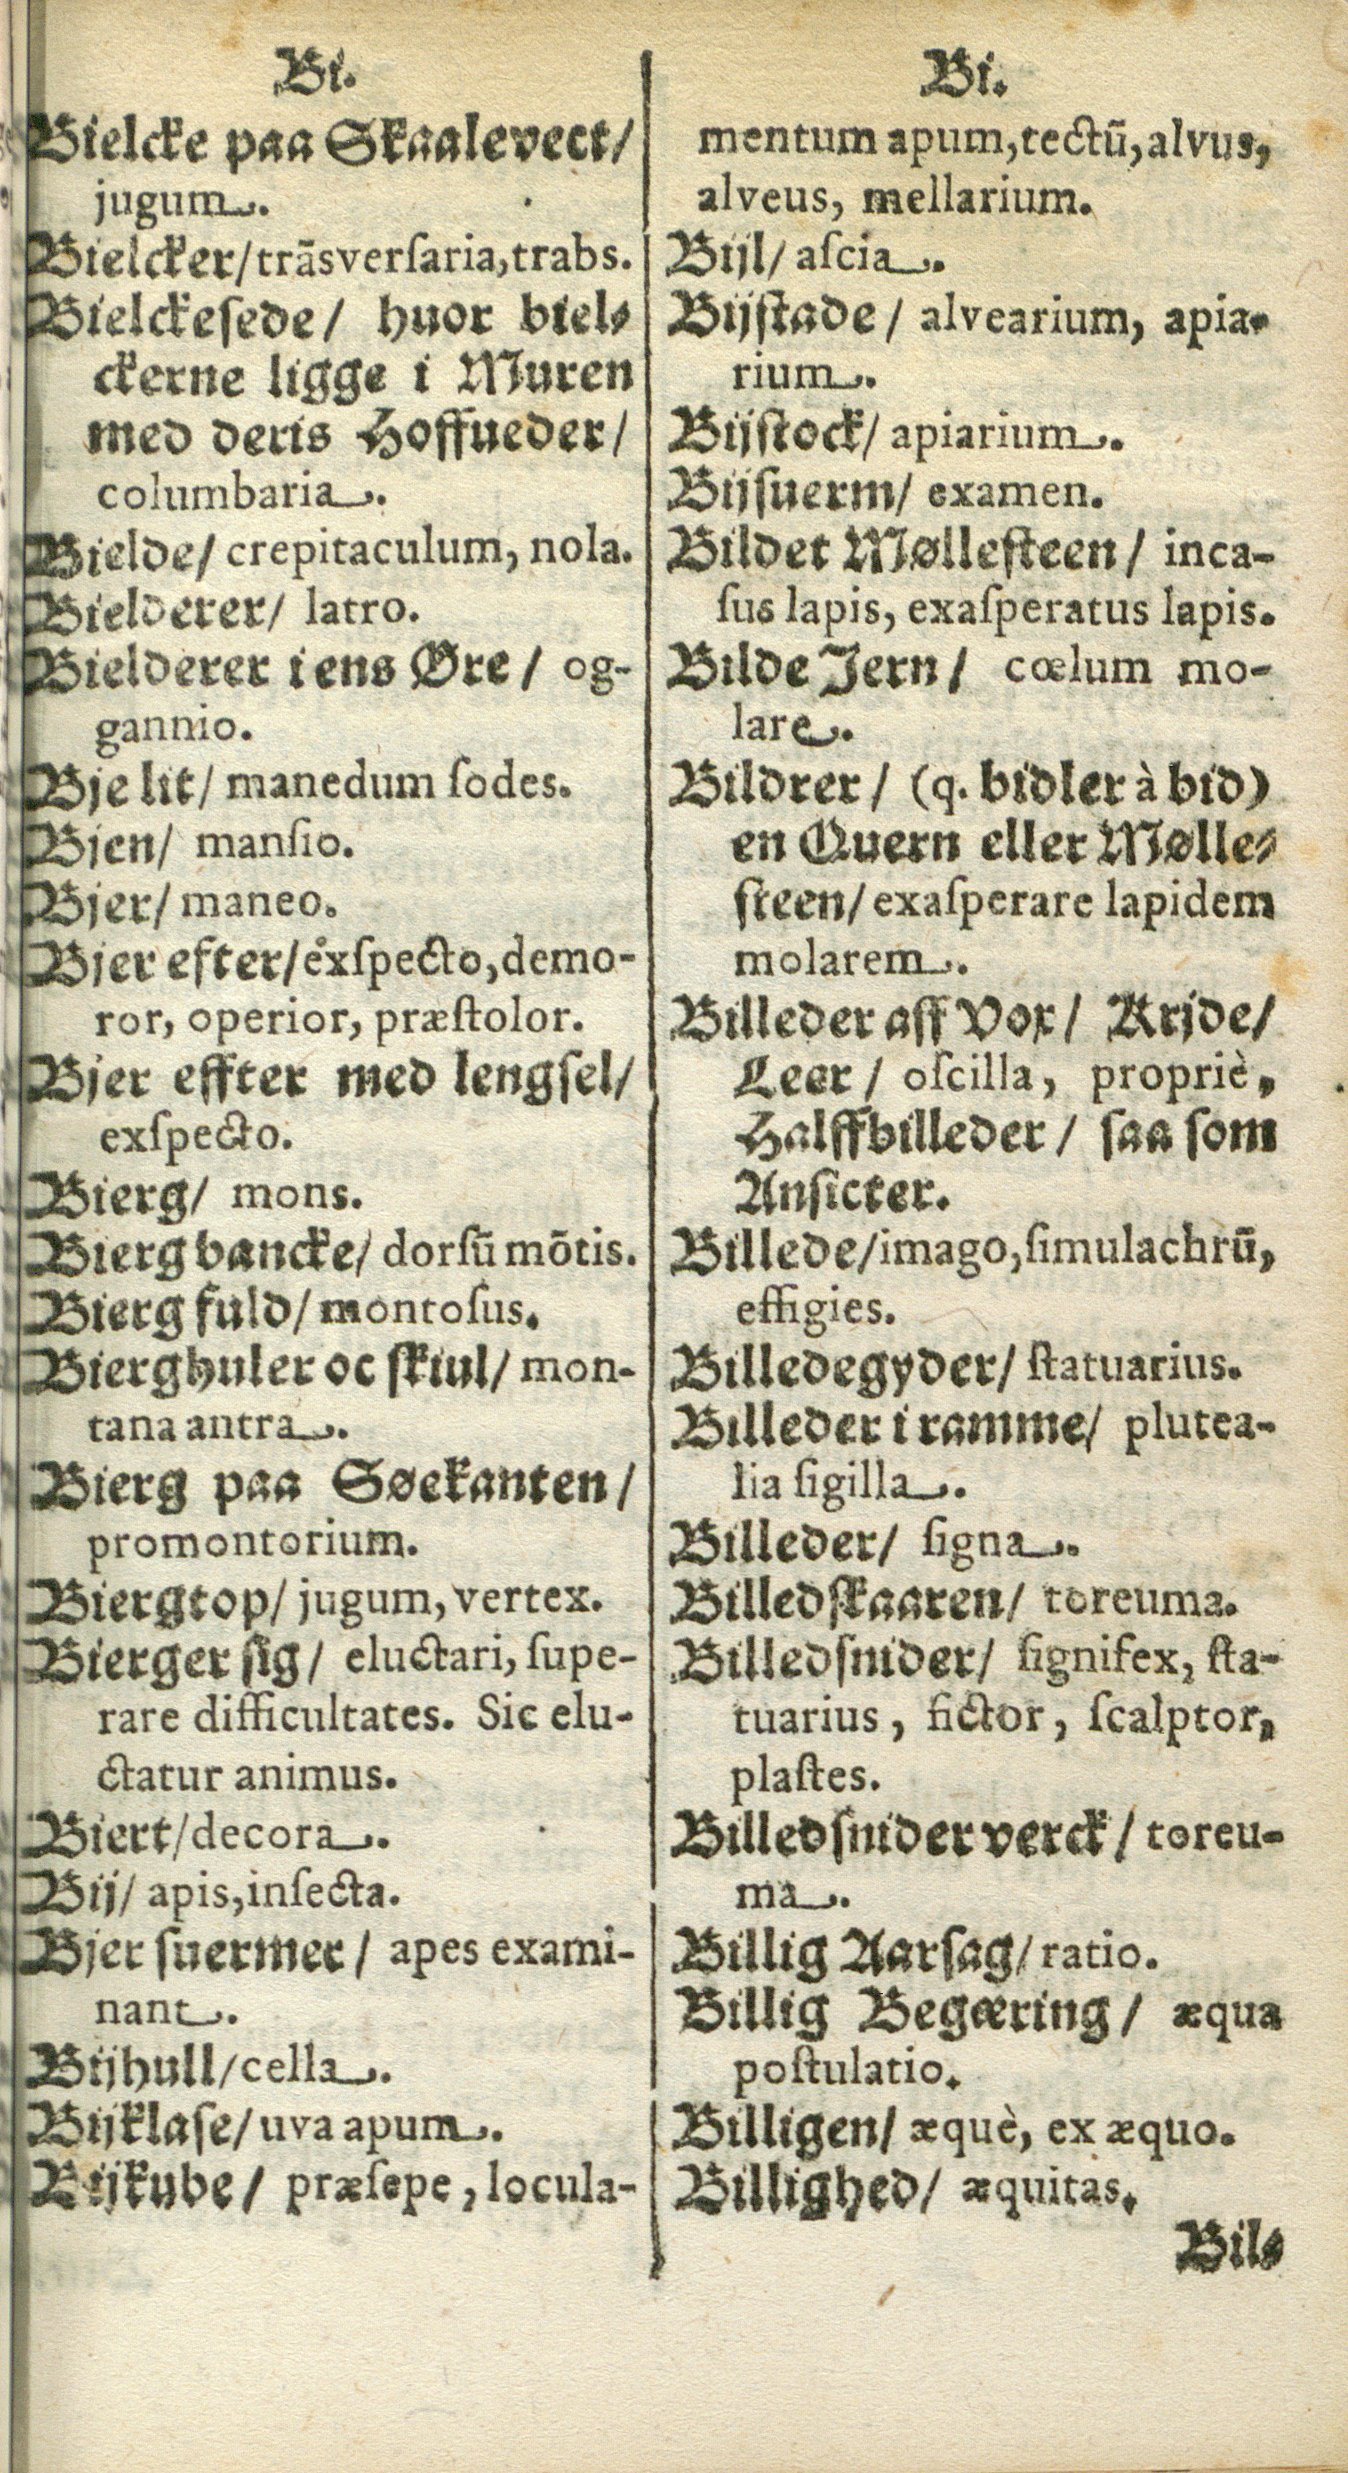 Bi.
Bielcke paa Skaalevect/
jugum.
Bielcker/trãsverſaria,trabs.
Bielckeſede/ huor biel⸗
ckerne ligge i Muren
med deris Hoffueder/
columbaria.
Bielde/ crepitaculum, nola.
Bielderer/ latro.
Bielderer i ens Øre/ og-
gannio.
Bje lit/ manedum ſodes.
Bjen/ manſio.
Bjer/ maneo.
Bjer efter/exſpecto,demo-
ror, operior, præſtolor.
Bjer effter med lengſel/
exſpecto.
Bierg/ mons.
Bierg bancke/ dorſũ mõtis.
Bierg fuld/ montoſus.
Bierghuler oc ſkiul/ mon-
tana antra.
Bierg paa Søekanten/
promontorium.
Biergtop/ jugum, vertex.
Bierger ſig/ eluctari, ſupe-
rare difficultates. Sic elu-
ctatur animus.
Biert/decora.
Bij/ apis,inſecta.
Bjer ſuermer/ apes exami-
nant.
Bijhull/cella.
Bijklaſe/ uva apum.
Bijkube/ præſepe, locula-
Bi.
mentum apum,tectũ,alvus,
alveus, mellarium.
Bijl/ aſcia.
Bijſtade/ alvearium, apia-
rium.
Bijſtock/ apiarium.
Bijſuerm/ examen.
Bildet Mølleſteen/ inca-
ſus lapis, exaſperatus lapis.
Bilde Jern/ cœlum mo-
lare.
Bildrer/ (q. bidler à bid)
en Quern eller Mølle⸗
ſteen/ exaſperare lapidem
molarem.
Billeder aff Vox/ Kride/
Leer/ oſcilla, propriè,
Halffbilleder/ ſaa ſom
Anſicter.
Billede/imago,ſimulachrũ,
effigies.
Billedegyder/ ſtatuarius.
Billeder i ramme/ plutea-
lia ſigilla.
Billeder/ ſigna.
Billedſkaaren/ toreuma.
Billedſnider/ ſignifex, ſta-
tuarius, fictor, ſcalptor,
plaſtes.
Billedſnider verck/ toreu-
ma.
Billig Aarſag/ ratio.
Billig Begæring/ æqua
poſtulatio.
Billigen/ æquè, ex æquo.
Billighed/ æquitas.
Bil⸗